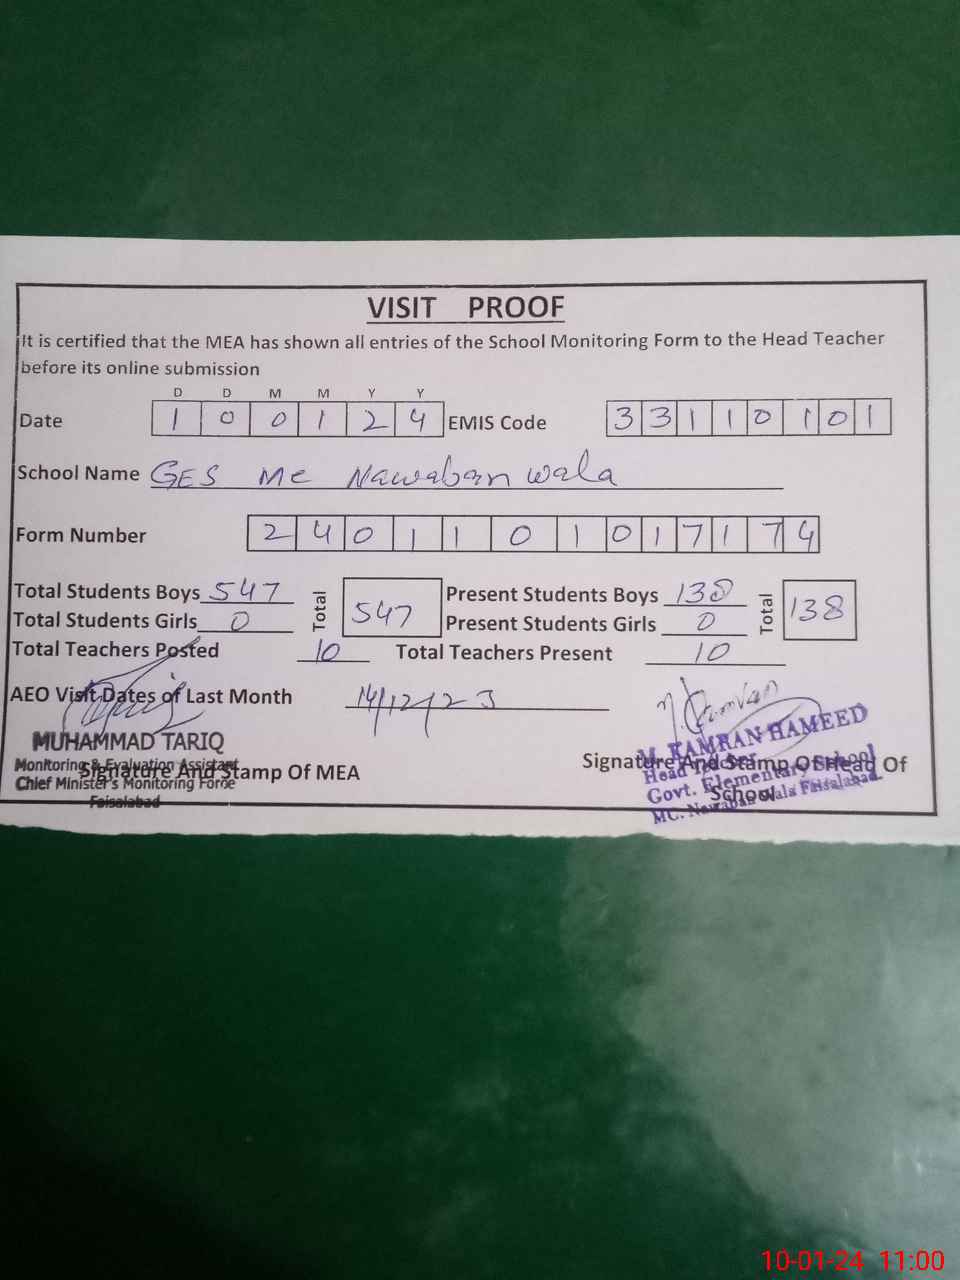 VISIT PROOF
It is certified that the MEA has shown all entries of the School Monitoring Form to the Head Teacher
before its online submission
D D M M Y Y
Date 1 0 0 1 2 4 EMIS Code 3 3 1 1 0 1 0 1
School Name GES MC Nawaban wala
Form Number 2 4 0 1 1 0 1 0 1 7 1 7 4
Total Students Boys 547 Total 547 Present Students Boys 138 Total 138
Total Students Girls 0 Present Students Girls 0
Total Teachers Posted 10 Total Teachers Present 10
AEO Visit Dates of Last Month 14/12/23
M. Kamran
MUHAMMAD TARIQ
Monitoring & Evaluation Assistant
Chief Minister's Monitoring Force
Faisalabad
Signature And Stamp Of MEA
M. KAMRAN HAMEED
Head Teacher
Govt. Elementary School
MC. Nawaban Wala Faisalabad
Signature And Stamp Of Head Of
School
10-01-24 11:00